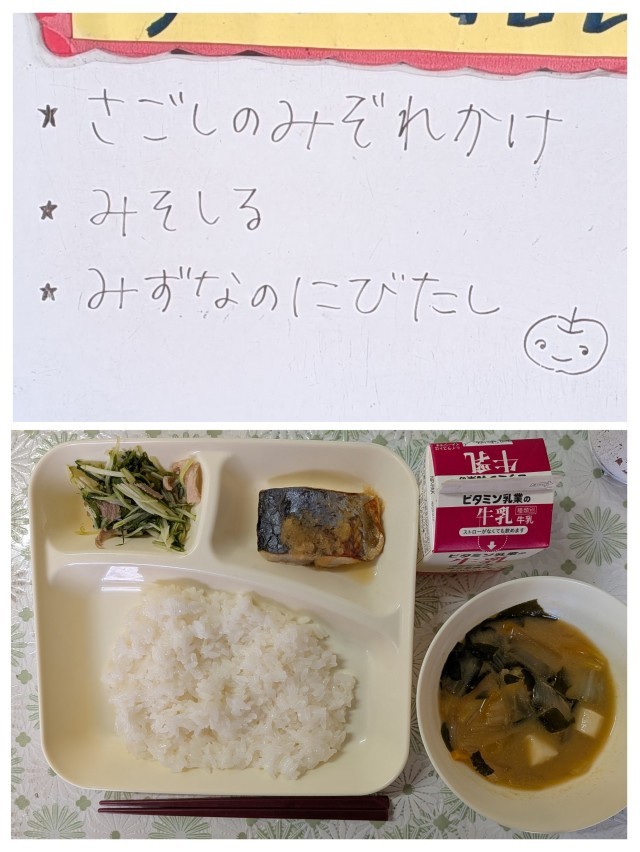 ★ さごしのみぞれかけ
★ みそしる
★ みずなのにびたし
牛乳
ビタミン乳業の
牛乳 種類別 牛乳
ストローがなくても飲めます
ビタミン乳業の
牛乳